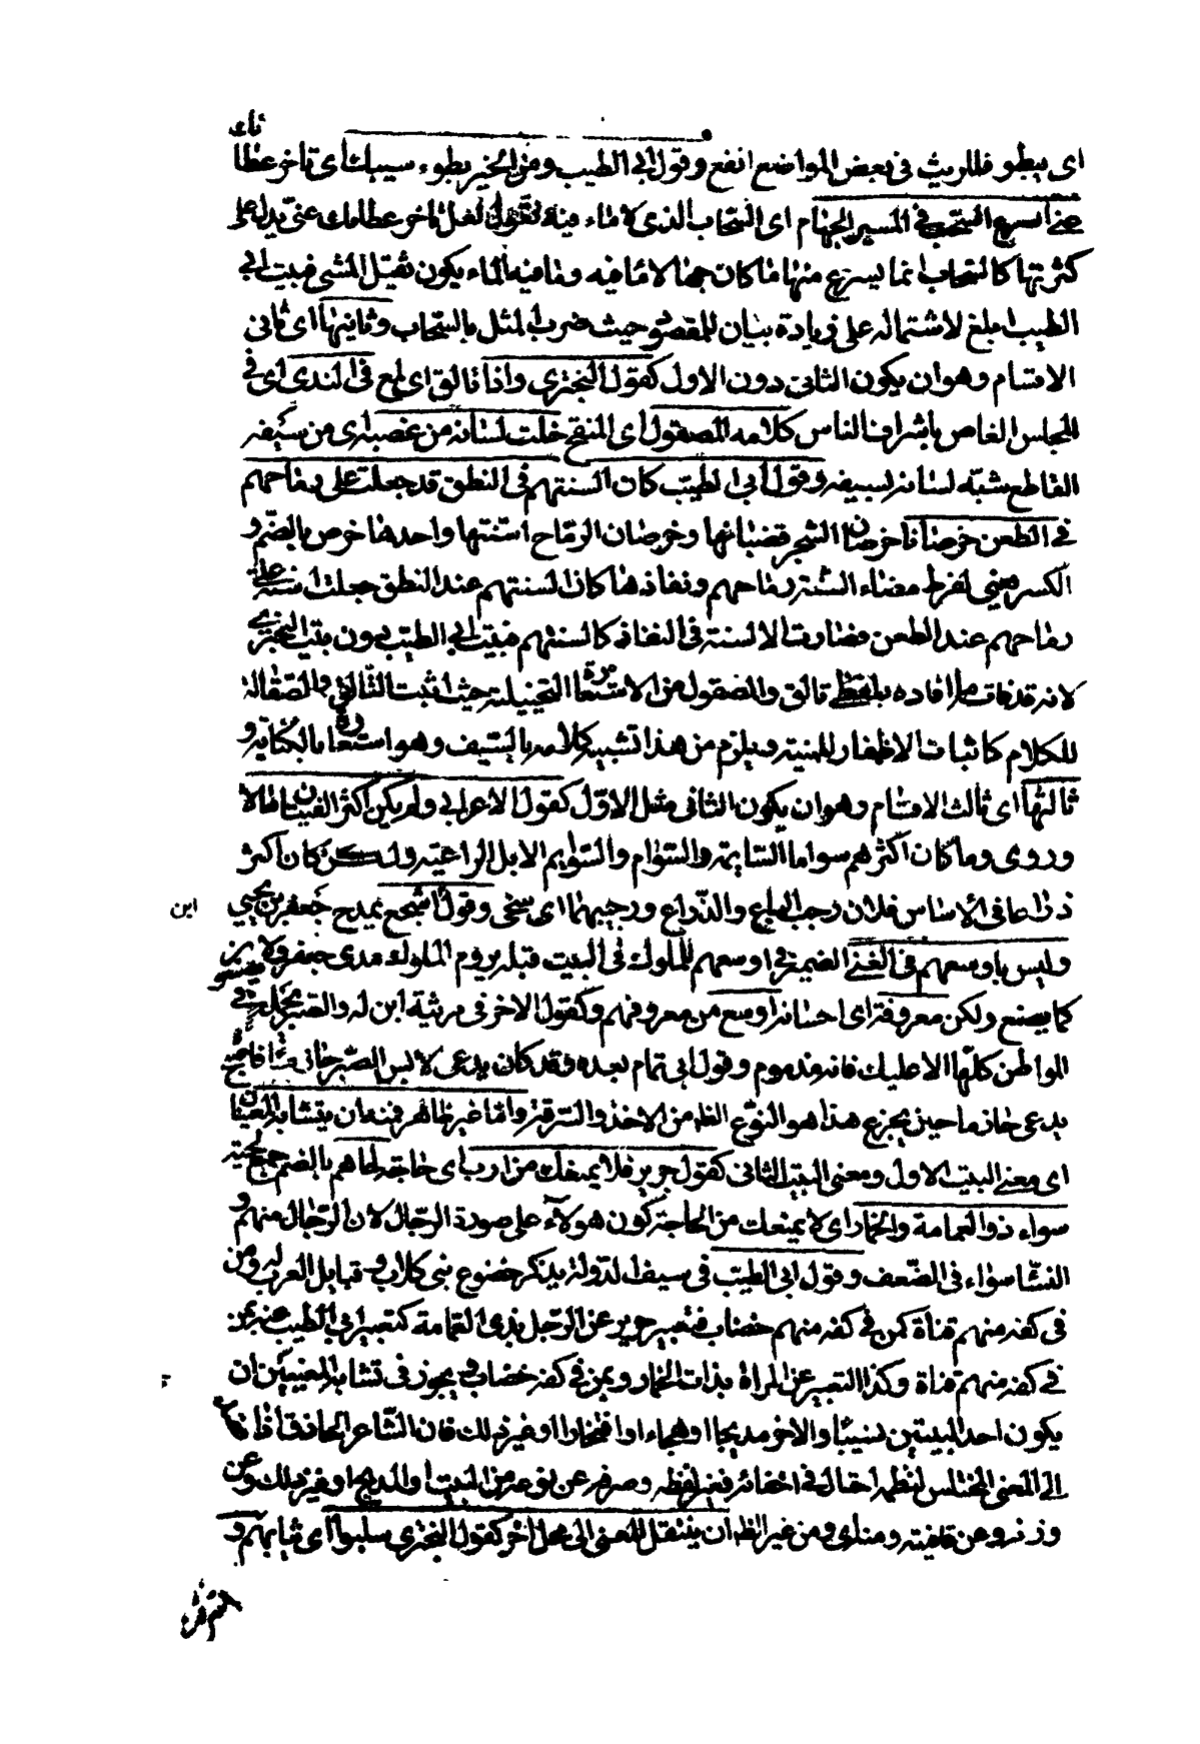 اى يبطو فللريث فى بعض المواضع انفع وقول ابى الطيب ومن الخير بطوء سيبك اى تاخر عطائك
عنى اسرع السحب فى المسير الجهام اى السحاب الذى لا ماء فيه تقول لعل تاخر عطائك عنى يدل على
كثرتها كالسحاب انما يسرع منها ما كان جهاما لا ماء فيه وما فيه الماء يكون ثقيل المشى فبيت ابى
الطيب ابلغ لاشتماله على زيادة بيان للمقصود حيث ضرب المثل بالسحاب وثانيها اى ثانى
الاقسام وهو ان يكون الثانى دون الاول كقول البحترى واذا تالق اى لمع فى الندى اى فى
المجلس الغاص باشراف الناس كلامه المصقول اى المنقح خلت لسانه من عضبه اى من سيفه
القاطع شبه لسانه بسيفه وقول ابى الطيب كان السنتهم فى النطق قد جعلت على رماحهم
فى الطعن خرصانا خرصان الشجر قضبانها وخرصان الرماح اسنتها واحدها خرص بالضم و
الكسر يعنى لفرط مضاء اسنة رماحهم ونفاذها كان السنتهم عند النطق جعلت اسنة على
رماحهم عند الطعن فصارت الاسنة فى النفاذ كالسنتهم فبيت ابى الطيب دون بيت البحترى
لانه قد فات ما افاده بلفظى تالق والمصقول من الاستعارة التخييلية حيث اثبت التالق والصقالة
للكلام كاثبات الاظفار للمنية ويلزم من هذا تشبيه كلامه بالسيف وهو استعارة بالكناية و
ثالثها اى ثالث الاقسام وهو ان يكون الثانى مثل الاول كقول الاعرابى ولم يكن اكثر الفتيان مالا
وروى وما كان اكثرهم سواما السائمة والسوام والسوايم الابل الراعية ولكن كان اكثر
ذراعا فى الاساس فلان رحب الباع والذراع ورحيبهما اى سخى وقول اشجع يمدح جعفر بن يحيى
ابن
وليس باوسعهم فى الغنى الضمير فى اوسعهم للملوك فى البيت قبله يروم الملوك مدى جعفر ولا يصنعون
كما يصنع ولكن معروفه اى احسانه اوسع من معروفهم وكقول الاخر فى مرثية ابن له والصبر يحمد فى
المواطن كلها الا عليك فانه مذموم وقول ابى تمام بعده وقد كان يدعى لابس الصبر حازما فاصبح
يدعى حازما حين يجزع هذا هو النوع الظ من الاخذ والسرقة واما غير ظاهر فمنه ان يتشابه المعنيان
اى معنى البيت الاول ومعنى البيت الثانى كقول جرير فلا يمنعك من ارب اى حاجة لحاهم بالضم جمع لحية
سواء ذو العمامة والخمار اى لا يمنعك من الحاجة كون هؤلاء على صورة الرجال لان الرجال منهم و
النساء سواء فى الضعف وقول ابى الطيب فى سيف الدولة يذكر خضوع بنى كلاب وقبايل العرب له ومن
فى كفه منهم قناة كمن فى كفه منهم خضاب فتعبير جرير عن الرجل بذى العمامة كتعبير ابى الطيب عنه بمن
فى كفه منهم قناة وكذا التعبير عن المراة بذات الخمار وبمن فى كفه خضاب ويجوز فى تشابه المعنيين ان
يكون احد البيتين نسيبا والاخر مديحا او هجاء او افتخارا او غير ذلك فان الشاعر الحاذق اذا
الى المعنى المختلس لنظمه احتال فى اخفائه فغير لفظه وصرفه عن نوعه من النسيب او المديح او غير ذلك وعن
وزنه وعن قافيته ومنه اى ومن غير الظ ان ينتقل المعنى الى محل اخر كقول البحترى سلبوا اى ثيابهم و